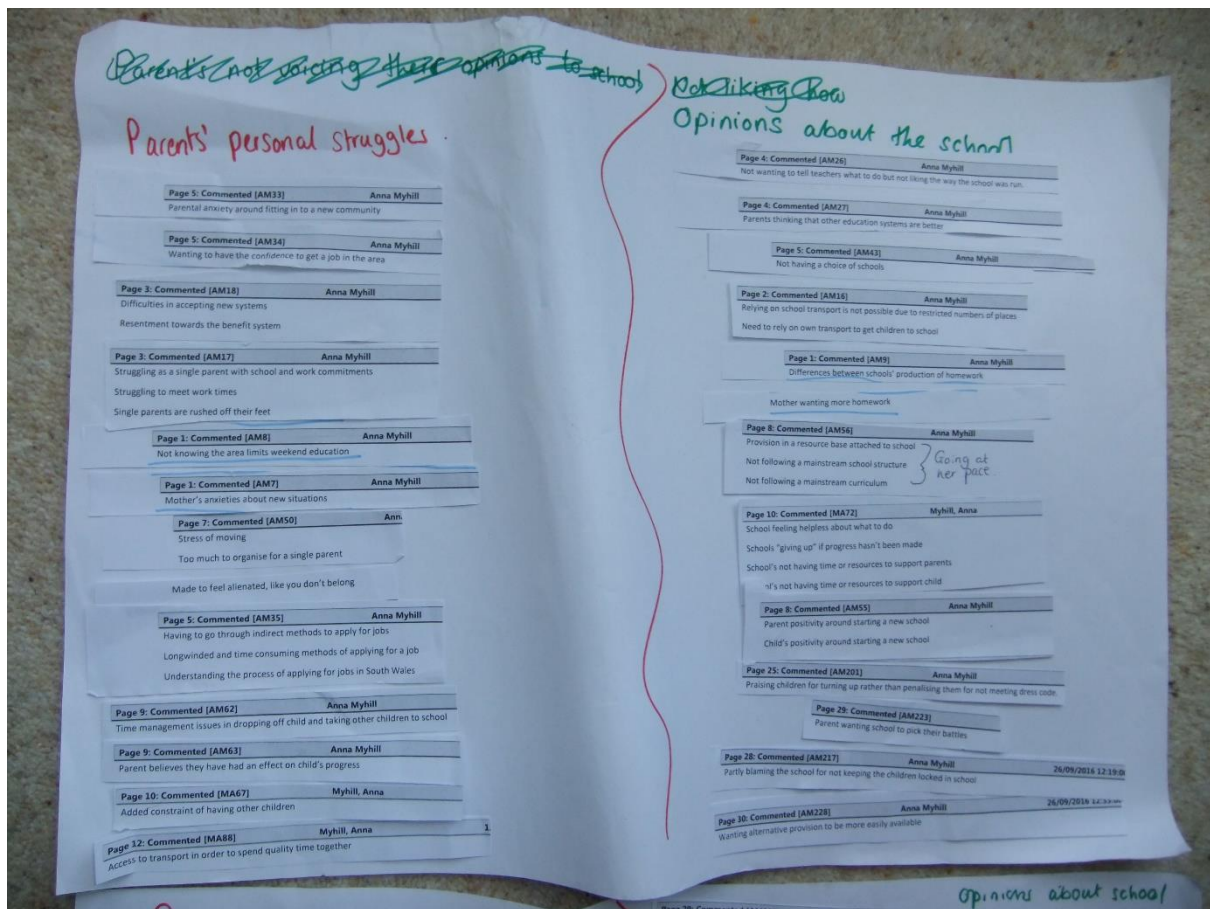 Parents not voicing there opinions to school
Parents' personal struggles.
Page 5: Commented [AM33] Anna Myhill
Parental anxiety around fitting in to a new community
Page 5: Commented [AM34] Anna Myhill
Wanting to have the confidence to get a job in the area
Page 3: Commented [AM18] Anna Myhill
Difficulties in accepting new systems
Resentment towards the benefit system
Page 3: Commented [AM17] Anna Myhill
Struggling as a single parent with school and work commitments
Struggling to meet work times
Single parents are rushed off their feet
Page 1: Commented [AM8] Anna Myhill
Not knowing the area limits weekend education
Page 1: Commented [AM7] Anna Myhill
Mother's anxieties about new situations
Page 7: Commented [AM50] Ann
Stress of moving
Too much to organise for a single parent
Made to feel alienated, like you don't belong
Page 5: Commented [AM35] Anna Myhill
Having to go through indirect methods to apply for jobs
Longwinded and time consuming methods of applying for a job
Understanding the process of applying for jobs in South Wales
Page 9: Commented [AM62] Anna Myhill
Time management issues in dropping off child and taking other children to school
Page 9: Commented [AM63] Anna Myhill
Parent believes they have had an effect on child's progress
Page 10: Commented [MA67] Myhill, Anna
Added constraint of having other children
Page 12: Commented [MA88] Myhill, Anna 1
Access to transport in order to spend quality time together
Not liking how
Opinions about the school
Page 4: Commented [AM26] Anna Myhill
Not wanting to tell teachers what to do but not liking the way the school was run.
Page 4: Commented [AM27] Anna Myhill
Parents thinking that other education systems are better
Page 5: Commented [AM43] Anna Myhill
Not having a choice of schools
Page 2: Commented [AM16] Anna Myhill
Relying on school transport is not possible due to restricted numbers of places
Need to rely on own transport to get children to school
Page 1: Commented [AM9] Anna Myhill
Differences between schools' production of homework
Mother wanting more homework
Page 8: Commented [AM56] Anna Myhill
Provision in a resource base attached to school
Not following a mainstream school structure
Not following a mainstream curriculum
Going at
her pace
Page 10: Commented [MA72] Myhill, Anna
School feeling helpless about what to do
Schools "giving up" if progress hasn't been made
School's not having time or resources to support parents
ol's not having time or resources to support child
Page 8: Commented [AM55] Anna Myhill
Parent positivity around starting a new school
Child's positivity around starting a new school
Page 25: Commented [AM201] Anna Myhill
Praising children for turning up rather than penalising them for not meeting dress code.
Page 29: Commented [AM223]
Parent wanting school to pick their battles
Page 28: Commented [AM217] Anna Myhill 26/09/2016 12:19:0
Partly blaming the school for not keeping the children locked in school
Page 30: Commented [AM228] Anna Myhill 26/09/2016
Wanting alternative provision to be more easily available
opinions about school